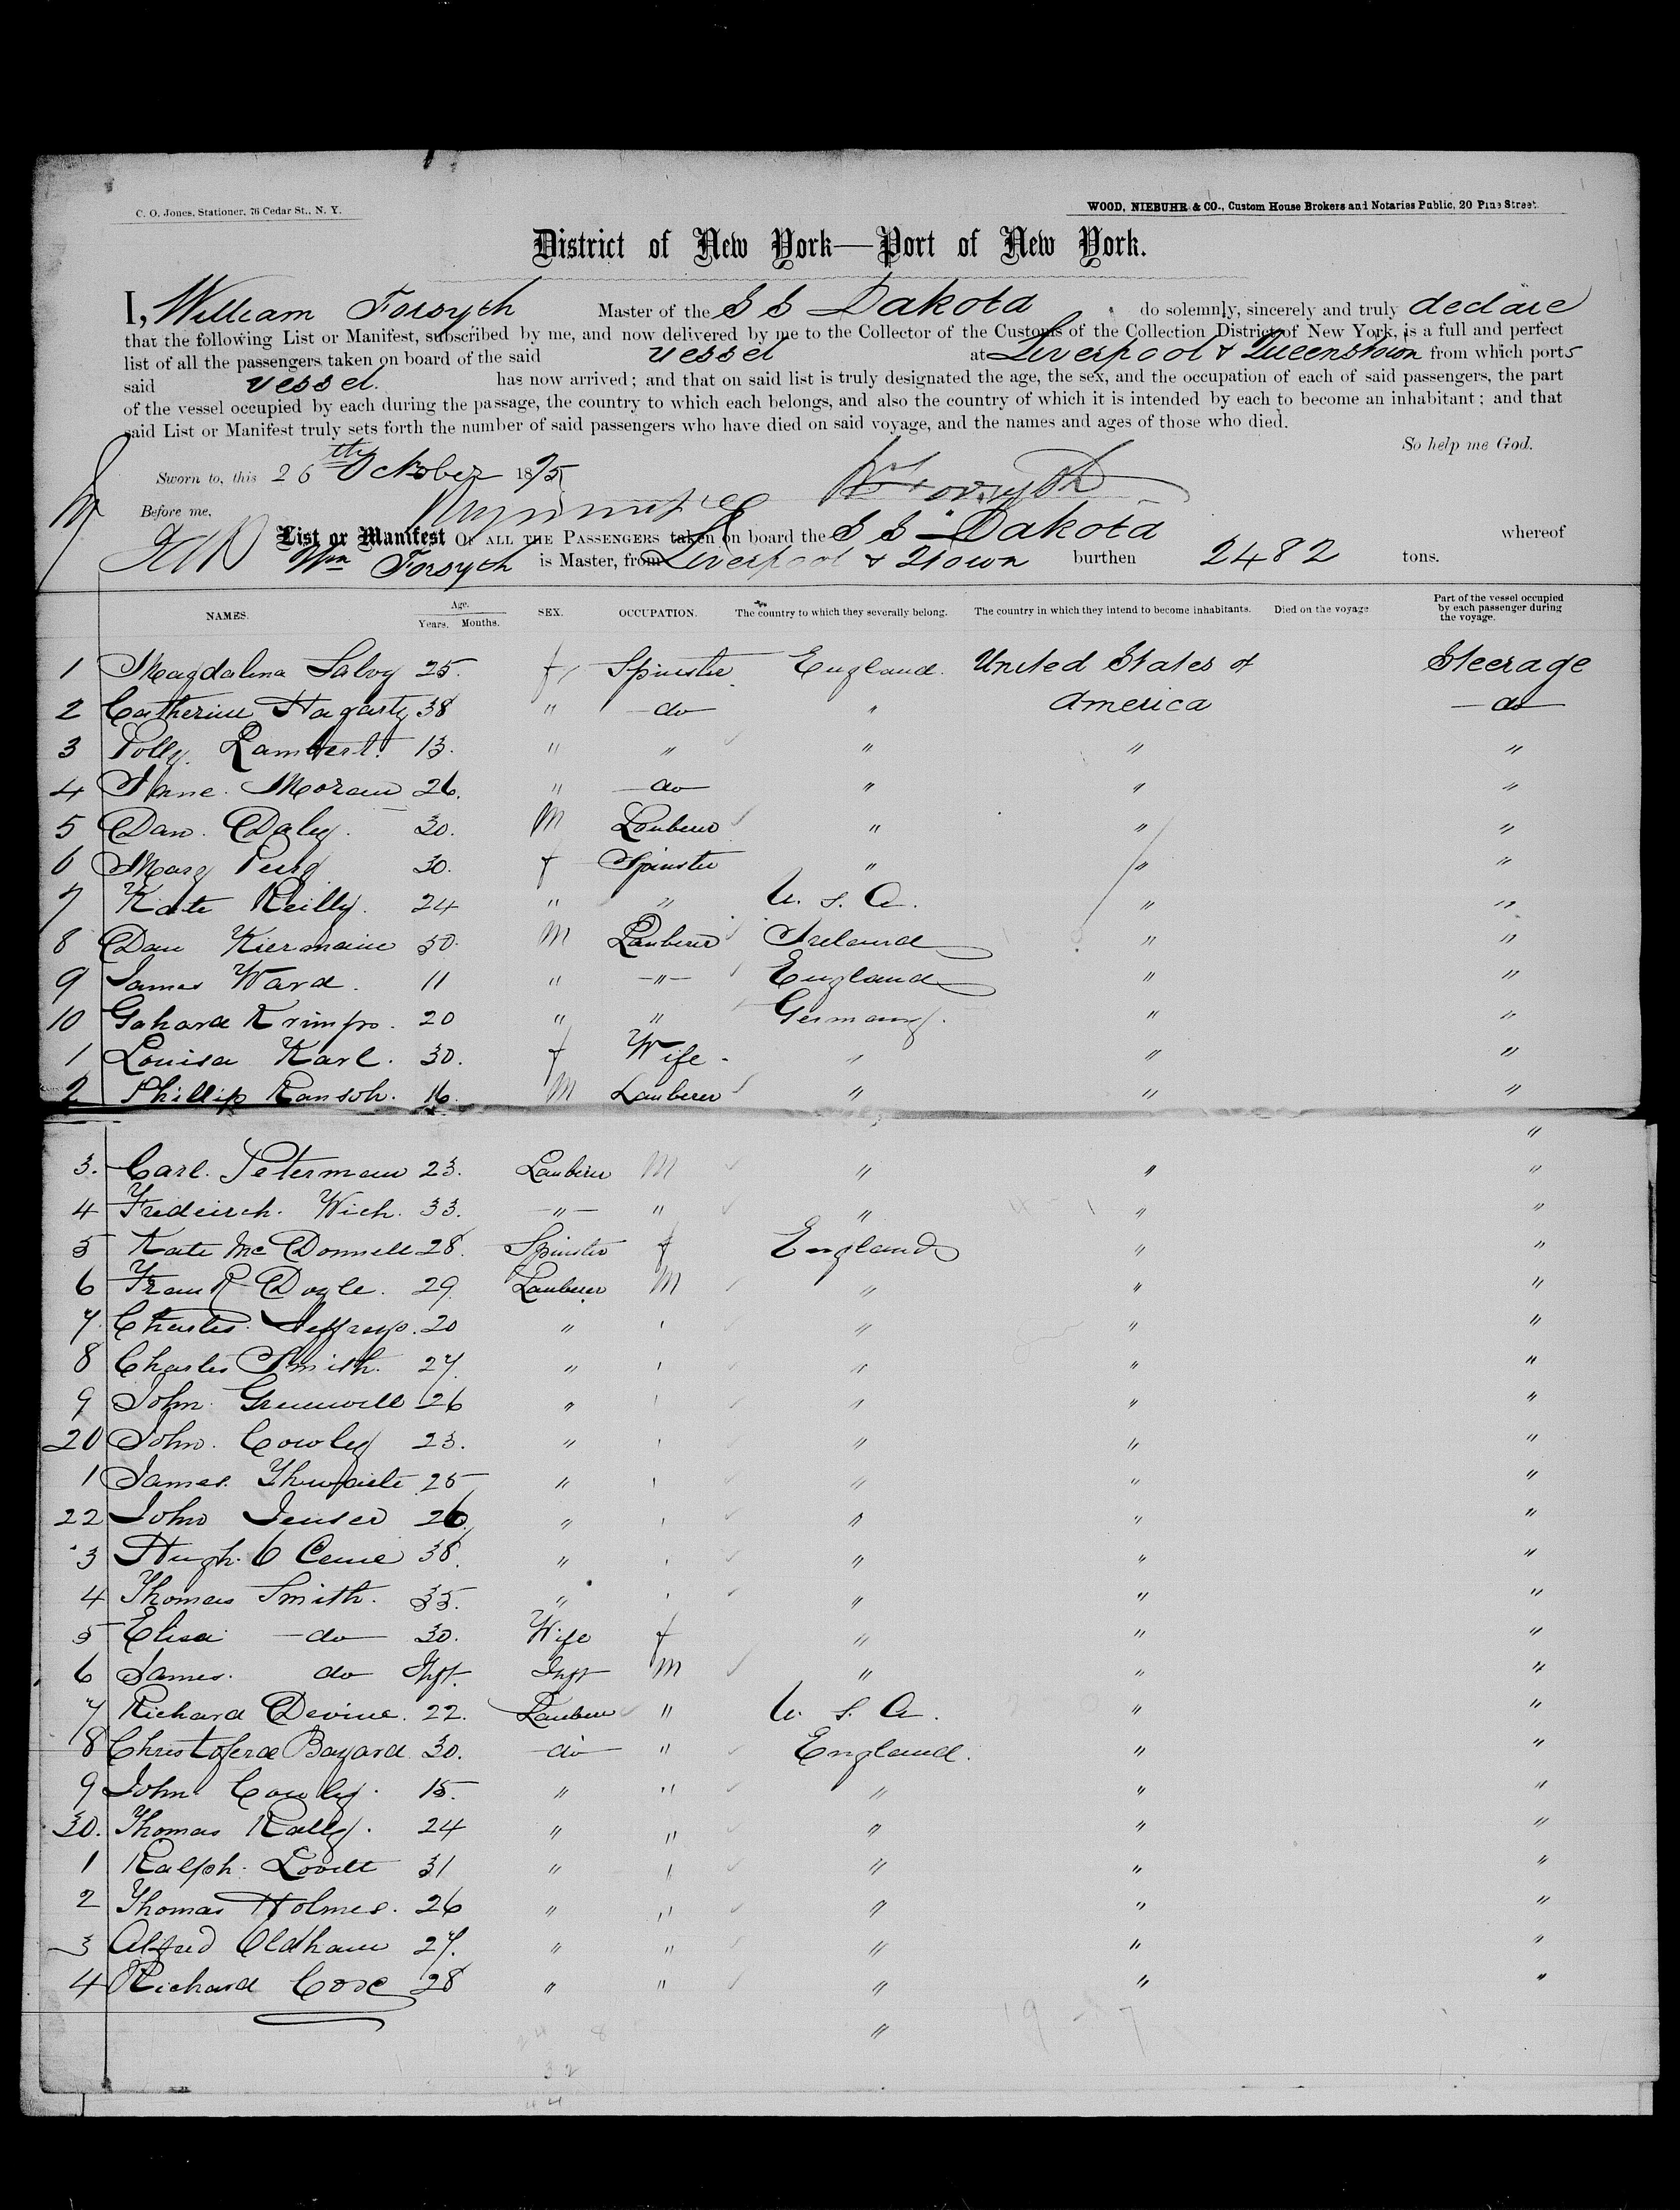 C. O. Jones, Stationer, 76 Cedar St., N. Y.
WOOD, NIEBUHR & CO., Custom House Brokers and Notaries Public, 20 Pine Street.
District of New York—Port of New York.
I, William Forsyth Master of the S S Dakota do solemnly, sincerely and truly declare
that the following List or Manifest, subscribed by me, and now delivered by me to the Collector of the Customs of the Collection District of New York, is a full and perfect
list of all the passengers taken on board of the said vessel at Liverpool & Queenstown from which ports
said vessel. has now arrived; and that on said list is truly designated the age, the sex, and the occupation of each of said passengers, the part
of the vessel occupied by each during the passage, the country to which each belongs, and also the country of which it is intended by each to become an inhabitant; and that
said List or Manifest truly sets forth the number of said passengers who have died on said voyage, and the names and ages of those who died.
So help me God.
Sworn to, this 26th October 1875
Wm Forsyth
Before me,
List or Manifest OF ALL THE PASSENGERS taken on board the S S Dakota whereof
Wm Forsyth is Master, from Liverpool & Qtown burthen 2482 tons.
NAMES. Age. Years. Months. SEX. OCCUPATION. The country to which they severally belong. The country in which they intend to become inhabitants. Died on the voyage. Part of the vessel occupied by each passenger during the voyage.
1 Magdalina 25. f Spinster England. United States of Steerage
2 Catherine Hagarty 38 " do " America do
3 Polly Lambert. 13. " " " " "
4 Jane Moran 26. " do " " "
5 Dan. Daly. 30. M Lauberer " " "
6 Mary 30. f Spinster " " "
7 Kate Reilly. 24 " " U. S. A. " "
8 Dan Kiermain 50. M Lauberer Ireland " "
9 James Ward. 11 " " England " "
10 20 " " Germany. " "
1 Louisa Karl. 30. f Wife " " "
2 Phillip Kansoh. 16. M Lauberer " " "
"
3. Carl. Peterman 23. Lauberer M " " "
4 Wich. 33. " " " " "
5 Kate McDonnell 28. Spinster f England " "
6 Frank Doyle. 29. Lauberer M " " "
7. Charles 20 " " " "
8 Charles Smith. 27. " " " "
9 John Greenwell 26 " " " "
20 John. Cowley 23. " " " "
1 James. Thwaite 25 " " " "
22 John Jenser 26. " " " "
3 Hugh. 38. " " " "
4 Thomas Smith. 35. " " " "
5 Elisa do 30. Wife f " " "
6 James. do Inft. Inft M " " "
7 Richard Devine. 22. Lauberer " U. S. A. " "
8 Bayard 30. do " England. " "
9 John Cowley. 15. " " " " "
30. Thomas Kelly. 24 " " " " "
1 Ralph. Lovett 31 " " " "
2 Thomas Holmes. 26 " " " " "
3 Alfred Oldham 27. " " " " "
4 Richard Coxe 28 " " " " "
"
19 - 7
24 8
32
44